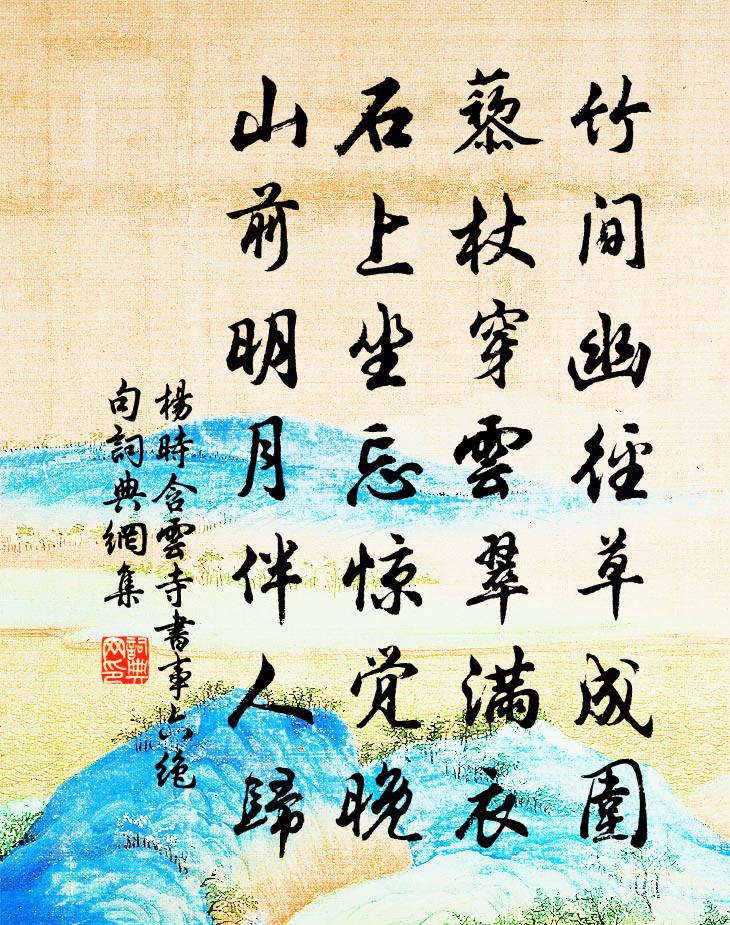 竹间幽径草成围
藜杖穿云翠满衣
石上坐忘惊觉晚
山前明月伴人归
杨时含云寺书事六绝
句词典网集
词典
网印